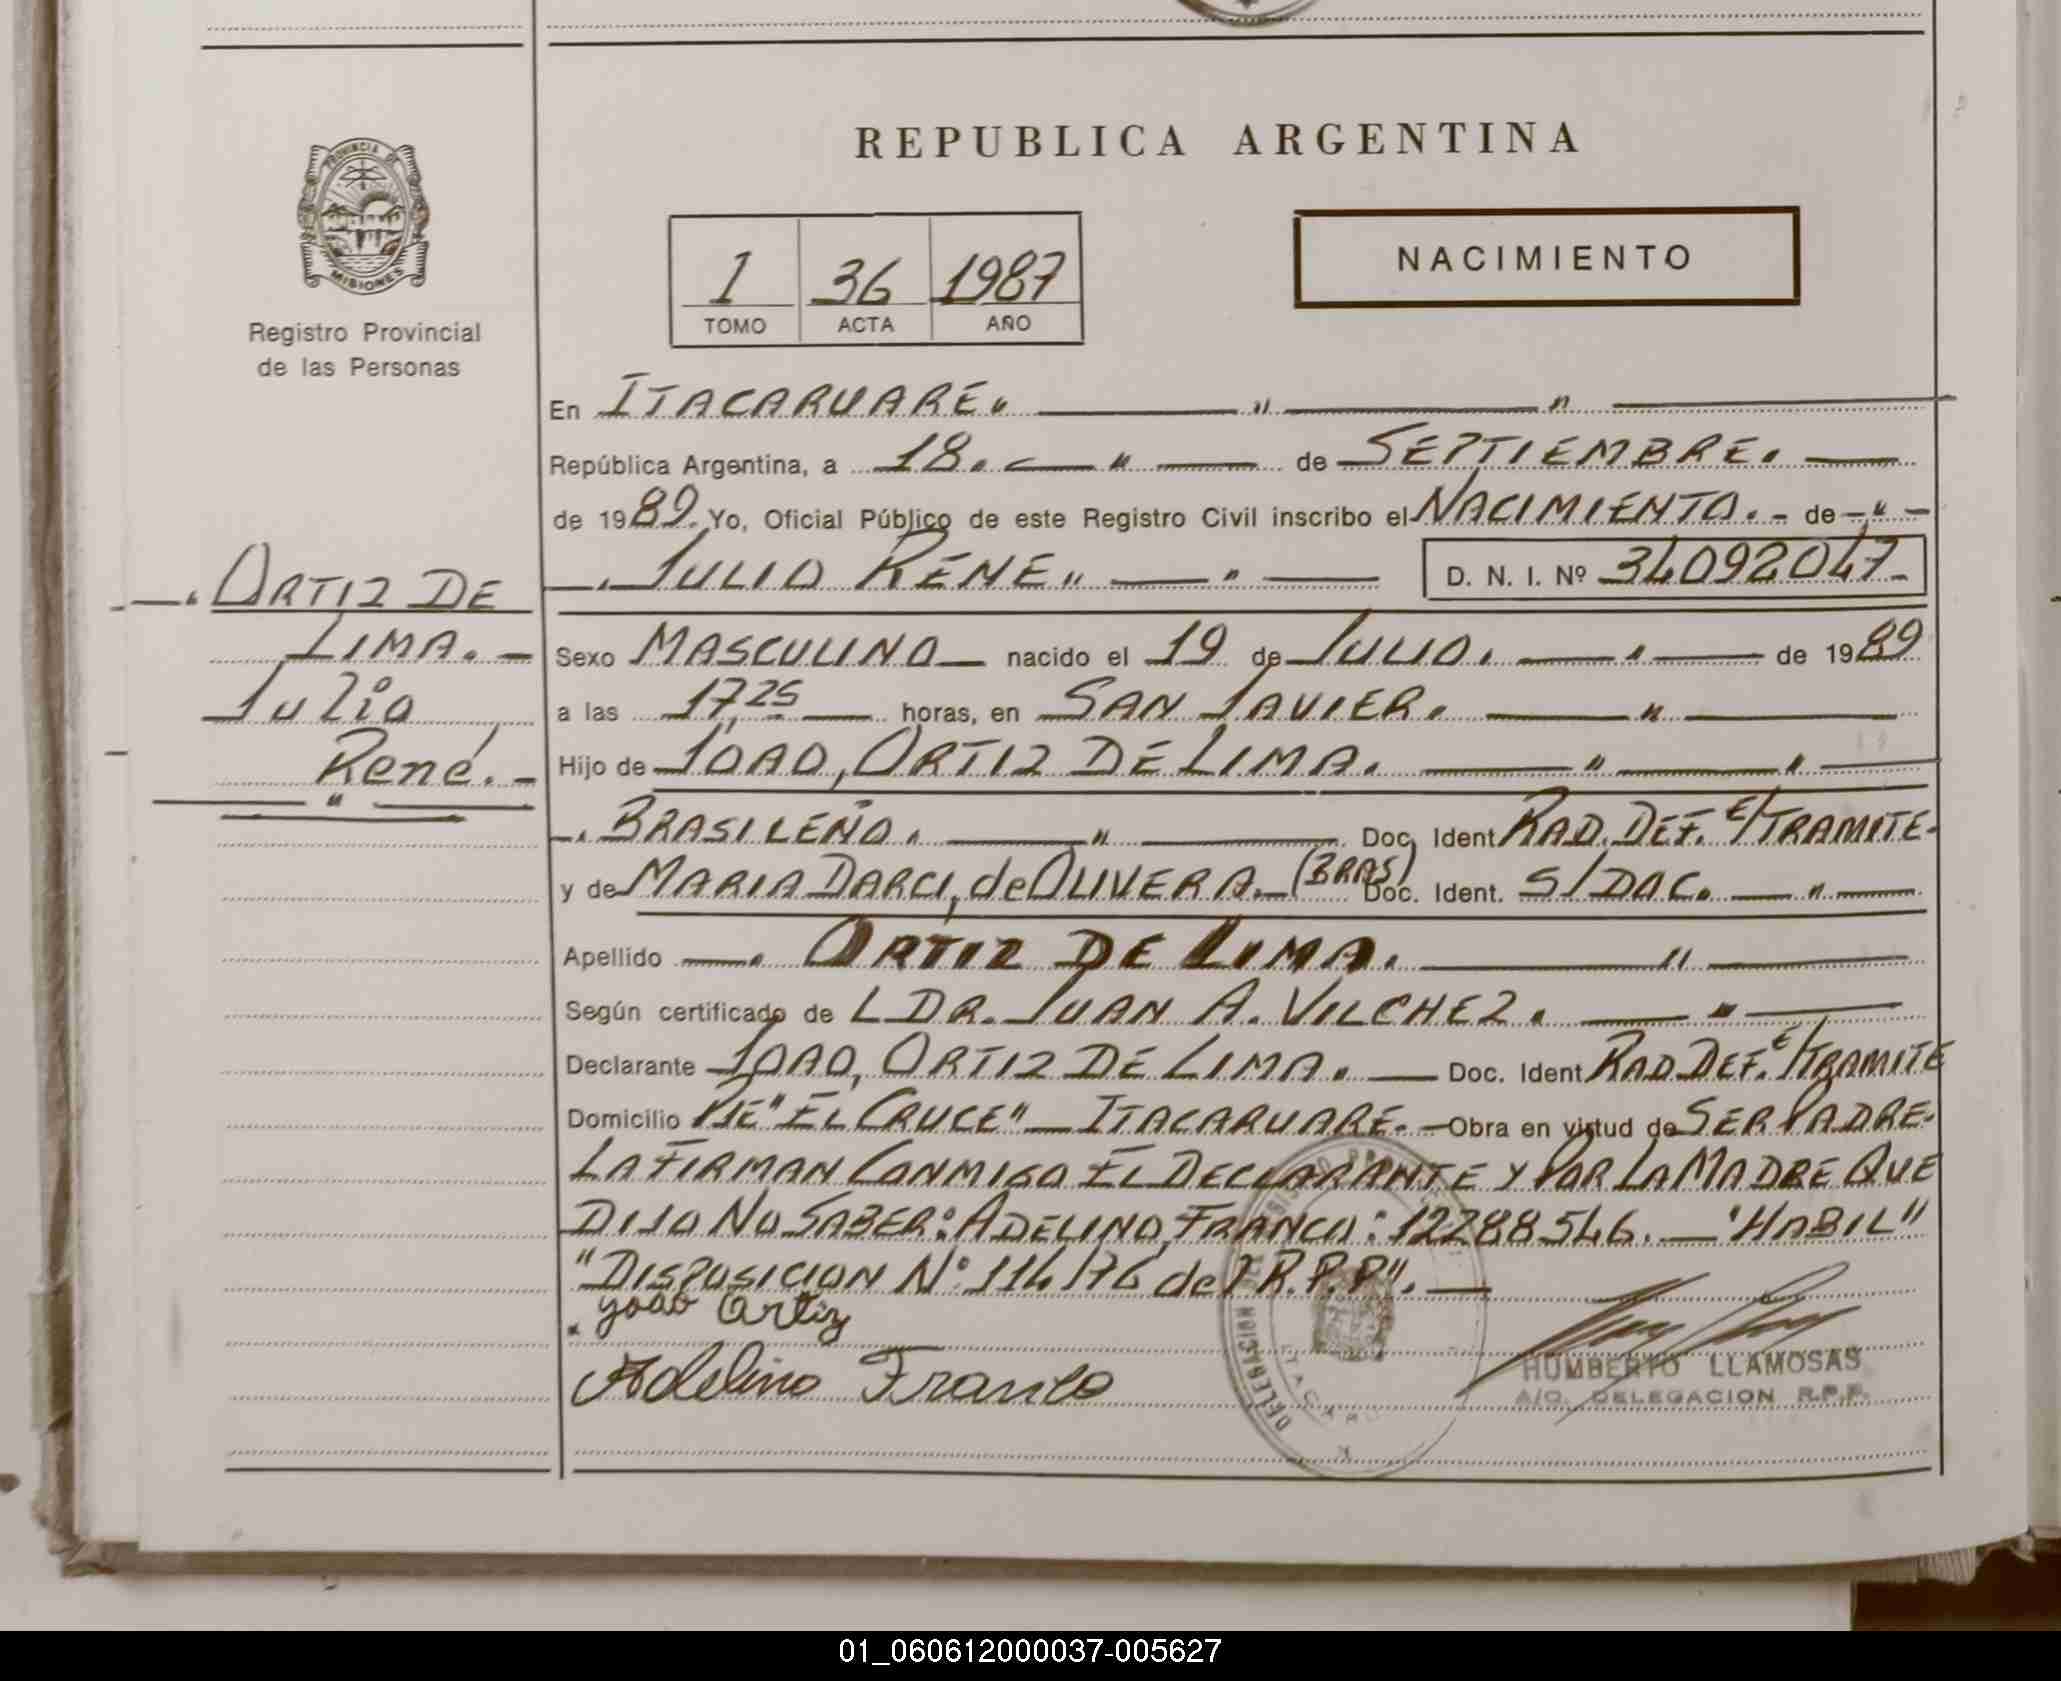 REPUBLICA ARGENTINA
PROVINCIA DE
MISIONES
Registro Provincial
de las Personas
NACIMIENTO
1 36 1987
TOMO ACTA AÑO
En ITACARUARE. — " — " —
República Argentina, a 18. — " — de SEPTIEMBRE. —
de 1989. Yo, Oficial Público de este Registro Civil inscribo el NACIMIENTO. - de - " -
ORTIZ DE
LIMA. -
Julio
René. -
—. JULIO RENE " — " — D. N. I. Nº 34092047-
Sexo MASCULINO — nacido el 19 de JULIO. — " — de 1989
a las 17,25 — horas, en SAN JAVIER. — " —
Hijo de JOAO, ORTIZ DE LIMA. — " — " —
—. BRASILEÑO. — " — Doc. Ident RAD. DEF. E/TRAMITE-
y de MARIA DARCI, de OLIVERA. - (BRAS) Doc. Ident. S/DOC. — " —
Apellido —. ORTIZ DE LIMA. — " —
Según certificado de L DR. JUAN A. VILCHEZ. — " —
Declarante JOAO, ORTIZ DE LIMA. — Doc. Ident RAD. DEF. E/TRAMITE
Domicilio "EL CRUCE" — ITACARUARE. — Obra en virtud de SER PADRE.
LA FIRMAN CONMIGO EL DECLARANTE Y POR LA MADRE QUE
DIJO NO SABER: ADELINO, FRANCO: 12288546. — "HABIL"
"DISPOSICION Nº 114/76 del R.P.P". —
yoao Ortiz
Adelino Franco
HUMBERTO LLAMOSAS
A/C. DELEGACION R.P.P.
DELEGACION
01_060612000037-005627